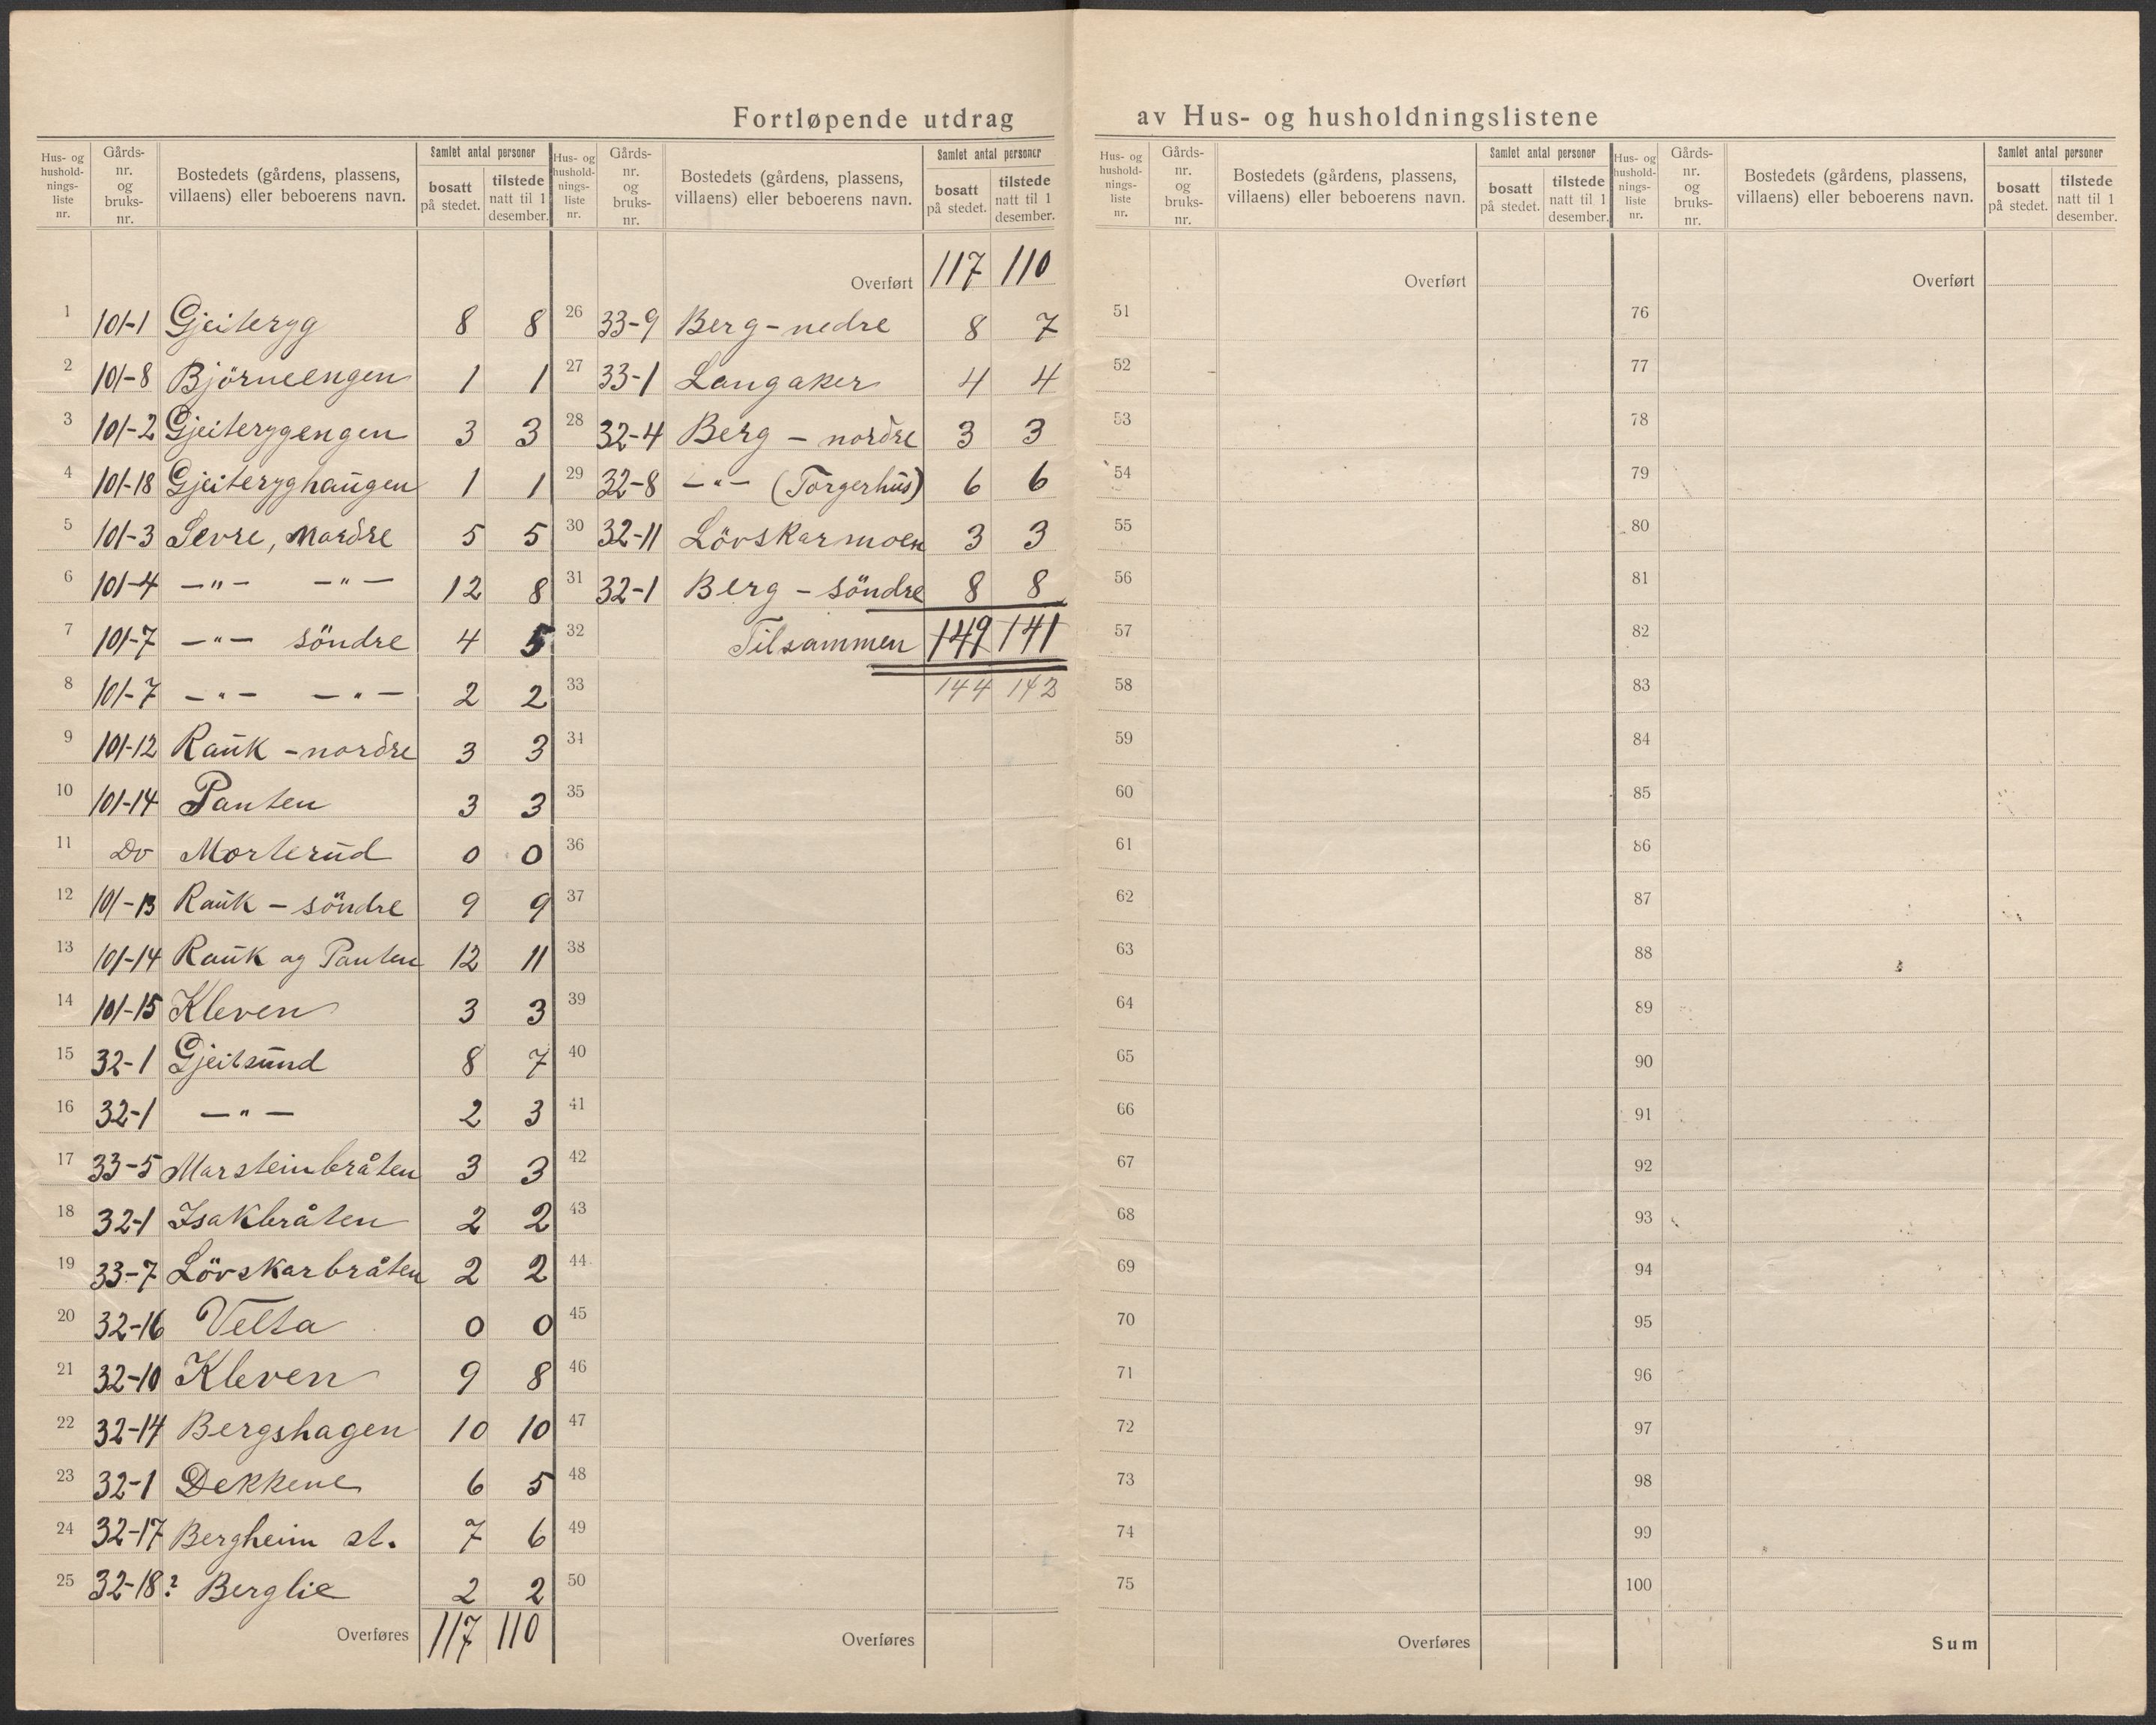 Fortløpende utdrag av Hus- og husholdningslistene
Hus- og husholdningsliste nr. | Gårds- nr. og bruks- nr. | Bostedets (gårdens, plassens, villaens) eller beboerens navn. | Samlet antal personer | bosatt på stedet. | tilstede natt til 1 desember.
1 101-1 Gjeiteryg 8 8
2 101-8 Björneengen 1 1
3 101-2 Gjeiterygengen 3 3
4 101-18 Gjeiteryghaugen 1 1
5 101-3 Sevre, Nordre 5 5
6 101-4 -"- -"- 12 8
7 101-7 -"- söndre 4 5
8 101-7 -"- -"- 2 2
9 101-12 Rauk - nordre 3 3
10 101-14 Panten 3 3
11 Do Morterud 0 0
12 101-13 Rauk - söndre 9 9
13 101-14 Rauk og Panten 12 11
14 101-15 Kleven 3 3
15 32-1 Gjeitsund 8 7
16 32-1 -"- 2 3
17 33-5 Marsteinbråten 3 3
18 32-1 Isakbråten 2 2
19 33-7 Lövskarbråten 2 2
20 32-16 Velta 0 0
21 32-10 Kleven 9 8
22 32-14 Bergshagen 10 10
23 32-1 Dekkene 6 5
24 32-17 Bergheim st. 7 6
25 32-18? Berglie 2 2
Overføres 117 110
Hus- og husholdningsliste nr. | Gårds- nr. og bruks- nr. | Bostedets (gårdens, plassens, villaens) eller beboerens navn. | Samlet antal personer | bosatt på stedet. | tilstede natt til 1 desember.
Overført 117 110
26 33-9 Berg - nedre 8 7
27 33-1 Langaker 4 4
28 32-4 Berg - nordre 3 3
29 32-8 -"- (Torgerhus) 6 6
30 32-11 Lövskarmoen 3 3
31 32-1 Berg - söndre 8 8
32 Tilsammen 149 141
33 144 142
34
35
36
37
38
39
40
41
42
43
44
45
46
47
48
49
50
Overføres
Hus- og husholdningsliste nr. | Gårds- nr. og bruks- nr. | Bostedets (gårdens, plassens, villaens) eller beboerens navn. | Samlet antal personer | bosatt på stedet. | tilstede natt til 1 desember.
Overført
51
52
53
54
55
56
57
58
59
60
61
62
63
64
65
66
67
68
69
70
71
72
73
74
75
Overføres
Hus- og husholdningsliste nr. | Gårds- nr. og bruks- nr. | Bostedets (gårdens, plassens, villaens) eller beboerens navn. | Samlet antal personer | bosatt på stedet. | tilstede natt til 1 desember.
Overført
76
77
78
79
80
81
82
83
84
85
86
87
88
89
90
91
92
93
94
95
96
97
98
99
100
Sum